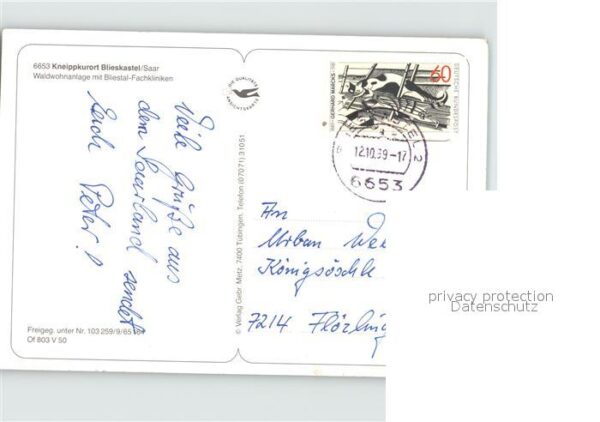 6653 Kneippkurort Blieskastel/Saar
Waldwohnanlage mit Bliestal-Fachkliniken
Viele Grüße aus
dem Saarland sendet
Euch Peter!
Freigeg. unter Nr. 103 259/9/65
Of 803 V 50
DIE QUALITÄTS
ANSICHTSKARTE
© Verlag Gebr. Metz, 7400 Tübingen, Telefon (07071) 31051
GERHARD MARCKS
60
DEUTSCHE BUNDESPOST
2
12.10.89-17
6653
An
Urban
Königsöschle
7214
privacy protection
Datenschutz